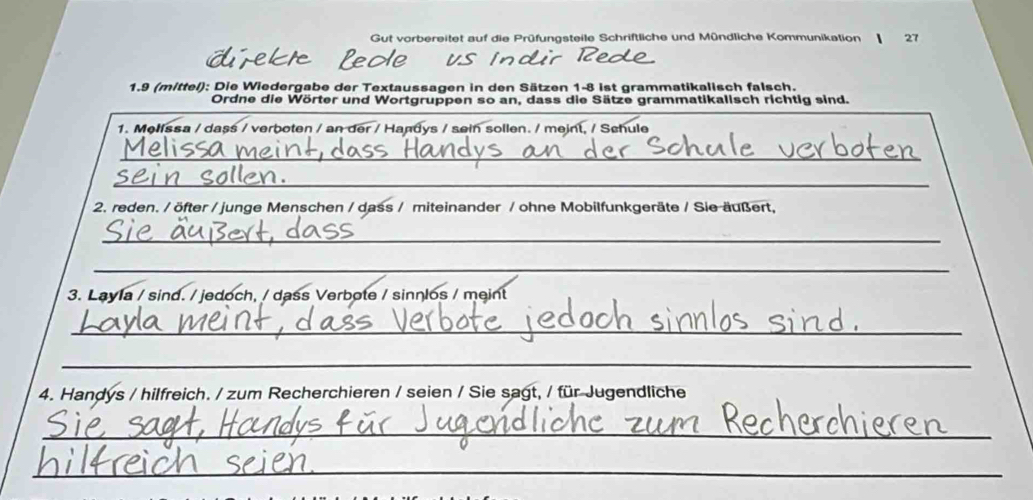 Gut vorbereitet auf die Prüfungsteile Schriftliche und Mündliche Kommunikation | 27
direkte Rede vs indir Rede
1.9 (mittel): Die Wiedergabe der Textaussagen in den Sätzen 1-8 ist grammatikalisch falsch.
Ordne die Wörter und Wortgruppen so an, dass die Sätze grammatikalisch richtig sind.
1. Melissa / dass / verboten / an der / Handys / sein sollen. / meint, / Schule
Melissa meint, dass Handys an der Schule verboten
sein sollen.
2. reden. / öfter / junge Menschen / dass / miteinander / ohne Mobilfunkgeräte / Sie äußert,
Sie äußert, dass
3. Layla / sind. / jedoch, / dass Verbote / sinnlos / meint
Layla meint, dass Verbote jedoch sinnlos sind.
4. Handys / hilfreich. / zum Recherchieren / seien / Sie sagt, / für Jugendliche
Sie sagt, Handys für Jugendliche zum Recherchieren
hilfreich seien.